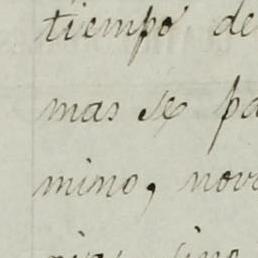 tiempo de
mas se pa
mino, nov